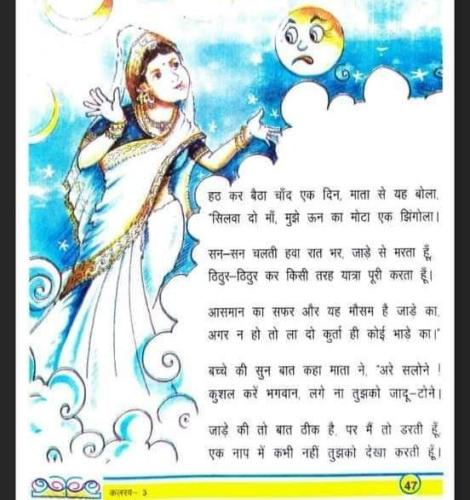 हठ कर बैठा चाँद एक दिन, माता से यह बोला,
"सिलवा दो माँ, मुझे ऊन का मोटा एक झिंगोला।
सन-सन चलती हवा रात भर, जाड़े से मरता हूँ,
ठिठुर-ठिठुर कर किसी तरह यात्रा पूरी करता हूँ।
आसमान का सफर और यह मौसम है जाड़े का,
अगर न हो तो ला दो कुर्ता ही कोई भाड़े का।"
बच्चे की सुन बात कहा माता ने, "अरे सलोने !
कुशल करें भगवान, लगे ना तुझको जादू-टोने।
जाड़े की तो बात ठीक है, पर मैं तो डरती हूँ,
एक नाप में कभी नहीं तुझको देखा करती हूँ।
कलरव- 3
47